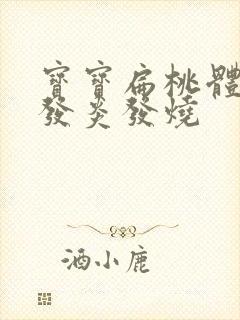 寶寶扁桃體
發炎發燒
酒小鹿